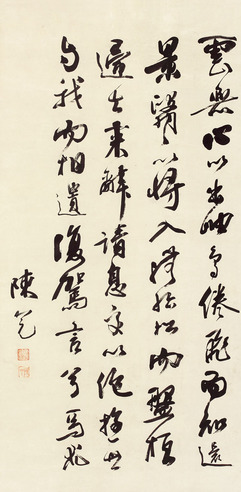 雲無心以出岫鳥倦飛而知還
景翳翳以將入撫孤松而盤桓
歸去來辭請息交以絕遊世
与我而相遺復駕言兮焉求
陳